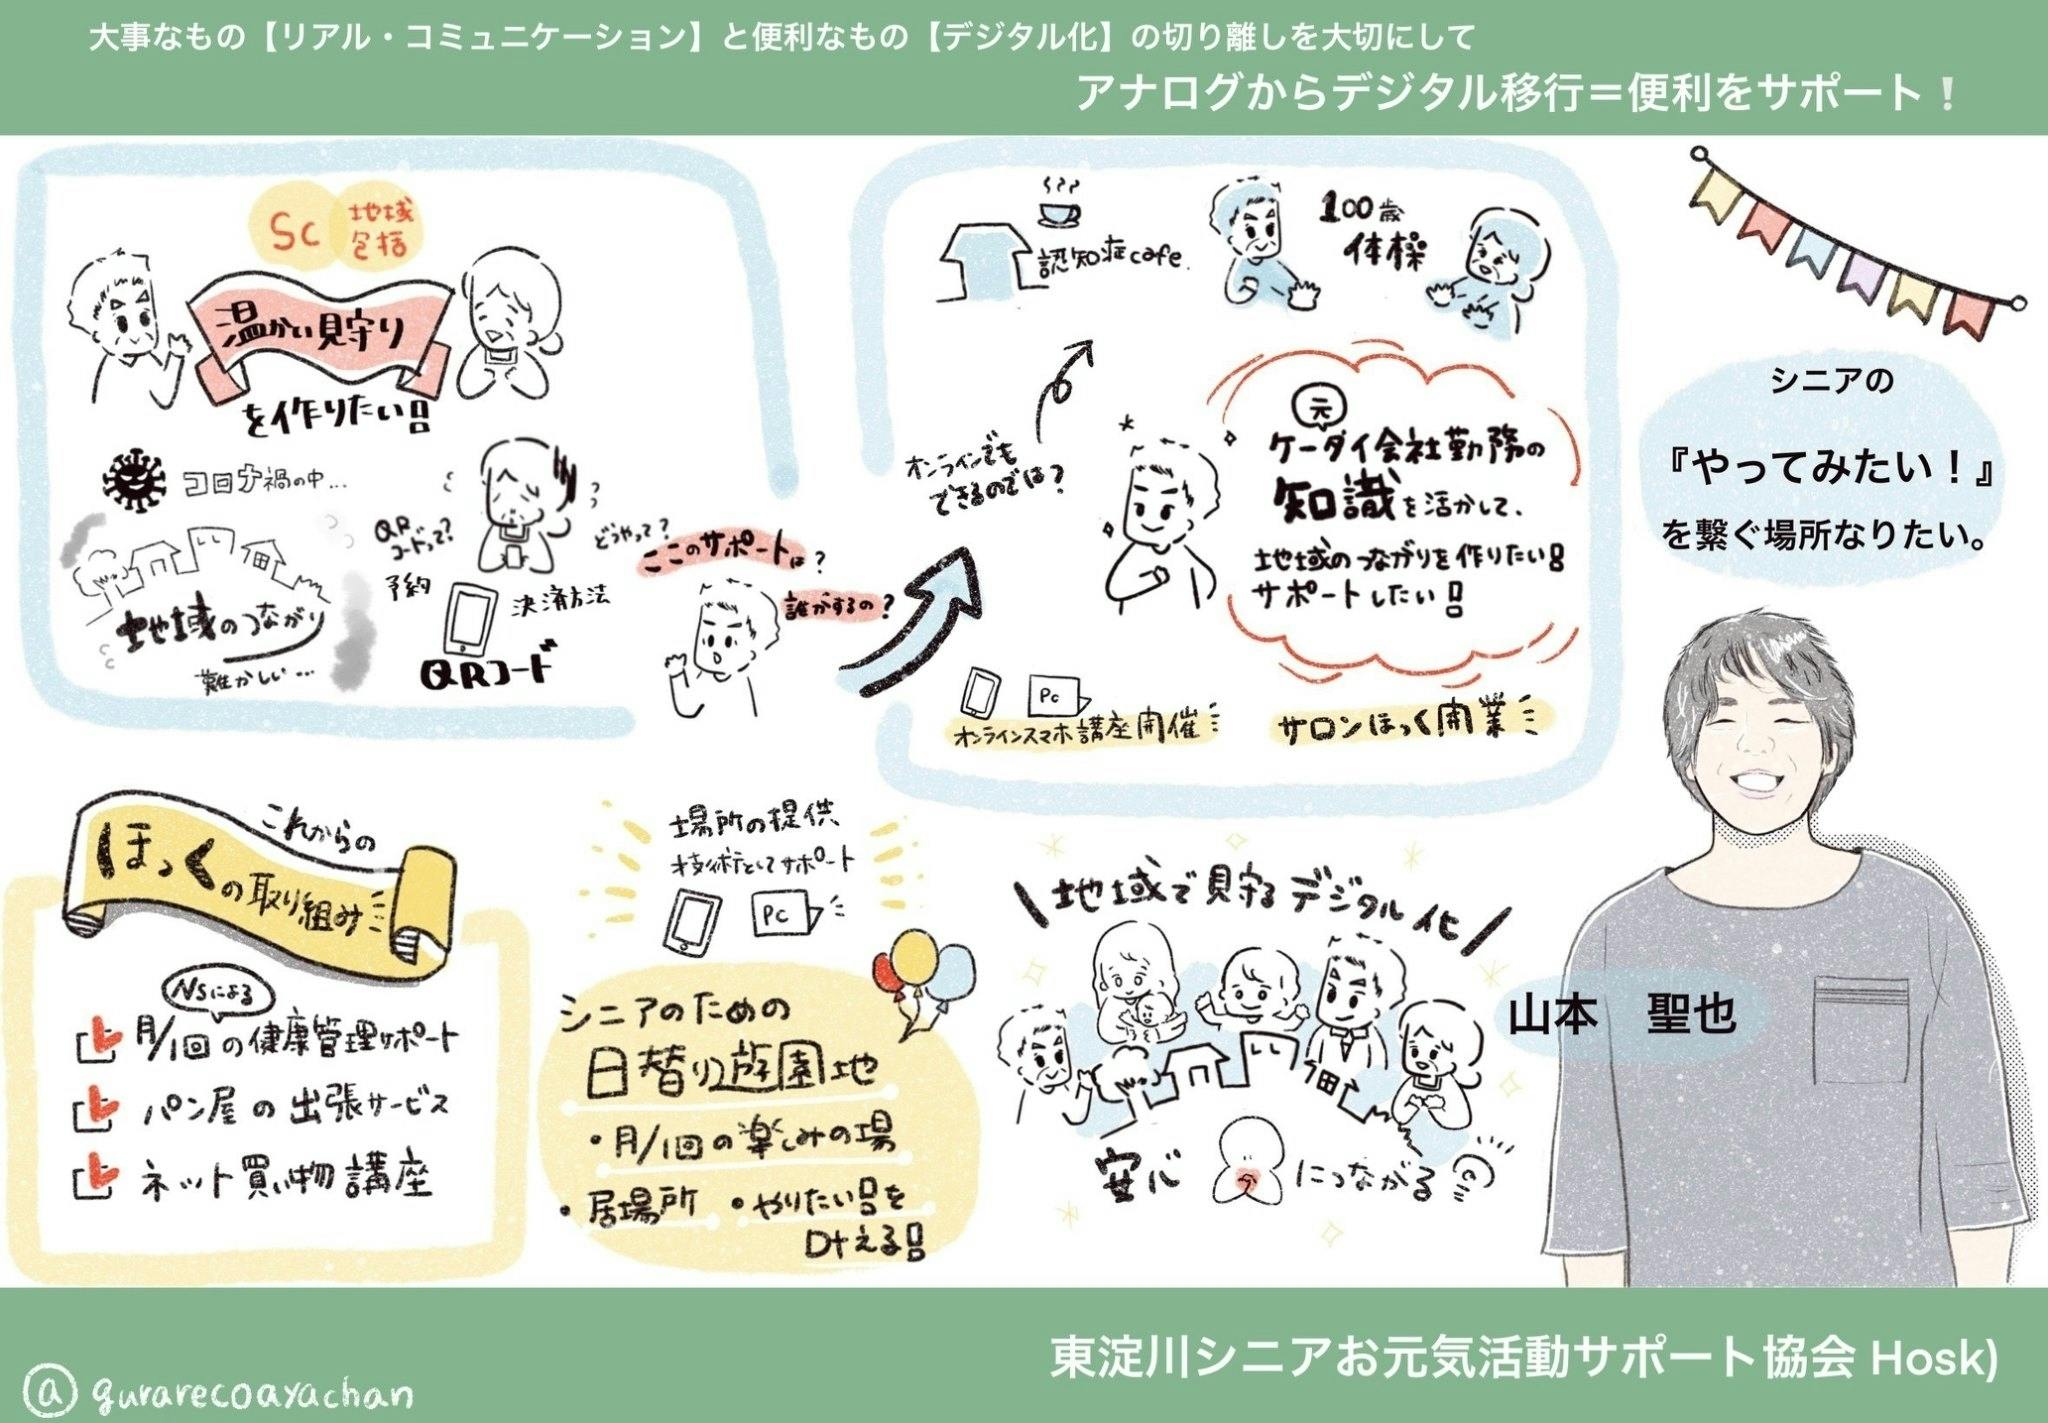 大事なもの【リアル・コミュニケーション】と便利なもの【デジタル化】の切り離しを大切にして
アナログからデジタル移行＝便利をサポート！
SC
地域
包括
温かい見守り
を作りたい!!
コロナ禍の中…
地域のつながり
難かしい…
QR
コードって?
どうやって?
予約
決済方法
QRコード
ここのサポートは?
誰がするの?
認知症cafe.
100歳
体操
オンラインでも
できるのでは?
元
ケータイ会社勤務の
知識を活かして、
地域のつながりを作りたい!!
サポートしたい!!
PC
オンラインスマホ講座開催
サロンほっく開業
シニアの
『やってみたい！』
を繋ぐ場所なりたい。
これからの
ほっくの取り組み
NSによる
月/1回の健康管理サポート
パン屋の出張サービス
ネット買い物講座
場所の提供
技術としてサポート
PC
シニアのための
日替り遊園地
・月/1回の楽しみの場
・居場所
・やりたい!!を
叶える!!
\地域で見守るデジタル化/
安心
につながる
山本　聖也
東淀川シニアお元気活動サポート協会 Hosk)
@gurarecoayachan